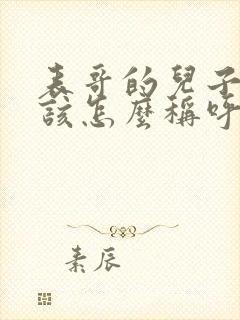 表哥的兒子
該怎麼稱呼
素辰